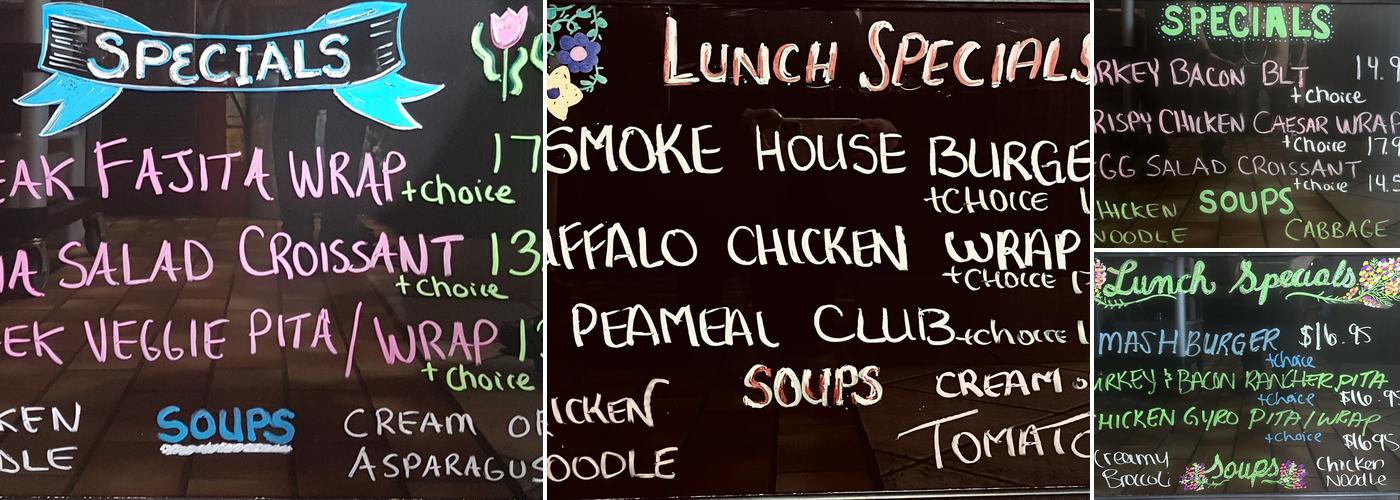 SPECIALS
EAK FAJITA WRAP 17
+choice
NA SALAD CROISSANT 13
+choice
EEK VEGGIE PITA/WRAP 13
+choice
KEN SOUPS CREAM OF
DLE ASPARAGUS
LUNCH SPECIALS
SMOKE HOUSE BURGE
+CHOICE 1
UFFALO CHICKEN WRAP
+CHOICE 17
PEAMEAL CLUB +choice 1
ICKEN SOUPS CREAM O
OODLE TOMATO
SPECIALS
RKEY BACON BLT 14.9
+choice
RISPY CHICKEN CAESAR WRAP
+choice 17.9
GG SALAD CROISSANT
+choice 14.5
HICKEN SOUPS CABBAGE
NOODLE
Lunch Specials
MASH BURGER $16.95
+choice
URKEY & BACON RANCHER PITA
+choice $16.95
HICKEN GYRO PITA/WRAP
+choice $16.95
Creamy Soups Chicken
Broccoli Noodle